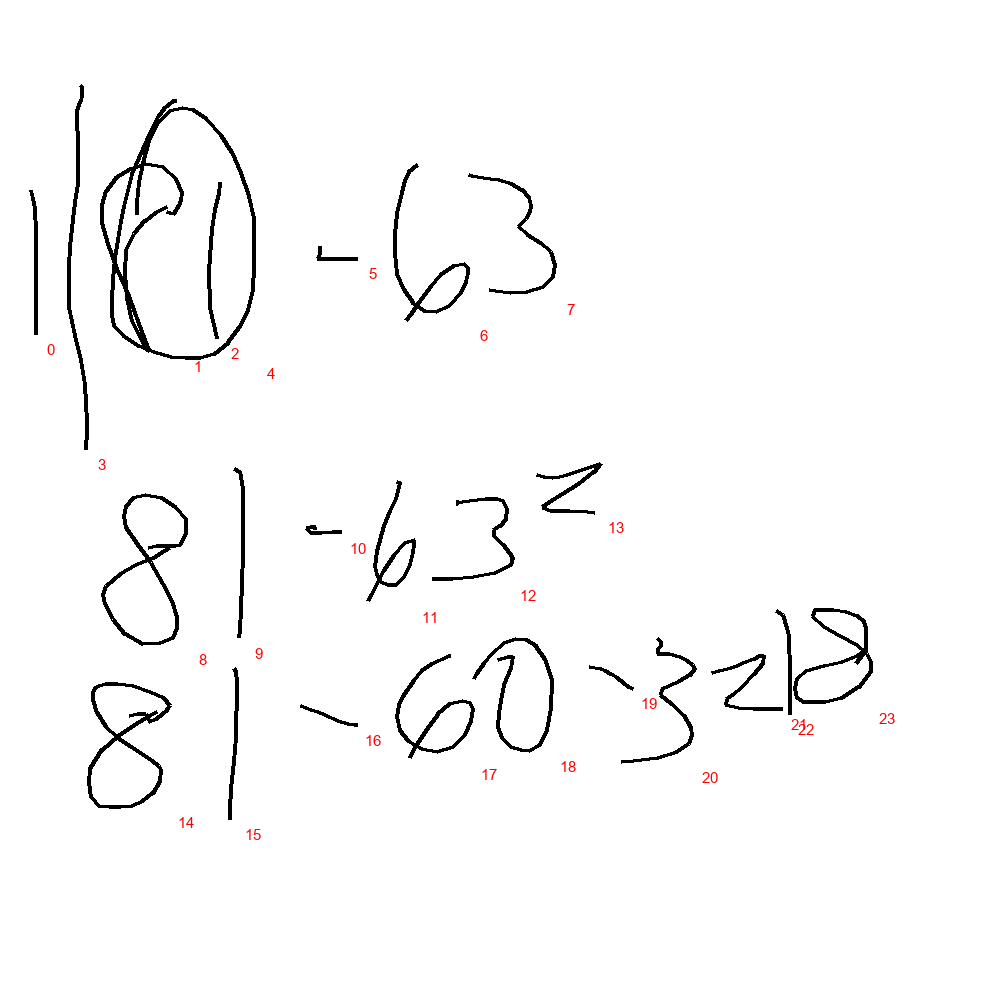 - 63
0 1 2 4 5 6 7
3
81 - 63 =
8 9 10 11 12 13
81 - 60 - 3 = 18
14 15 16 17 18 19 20 21 22 23